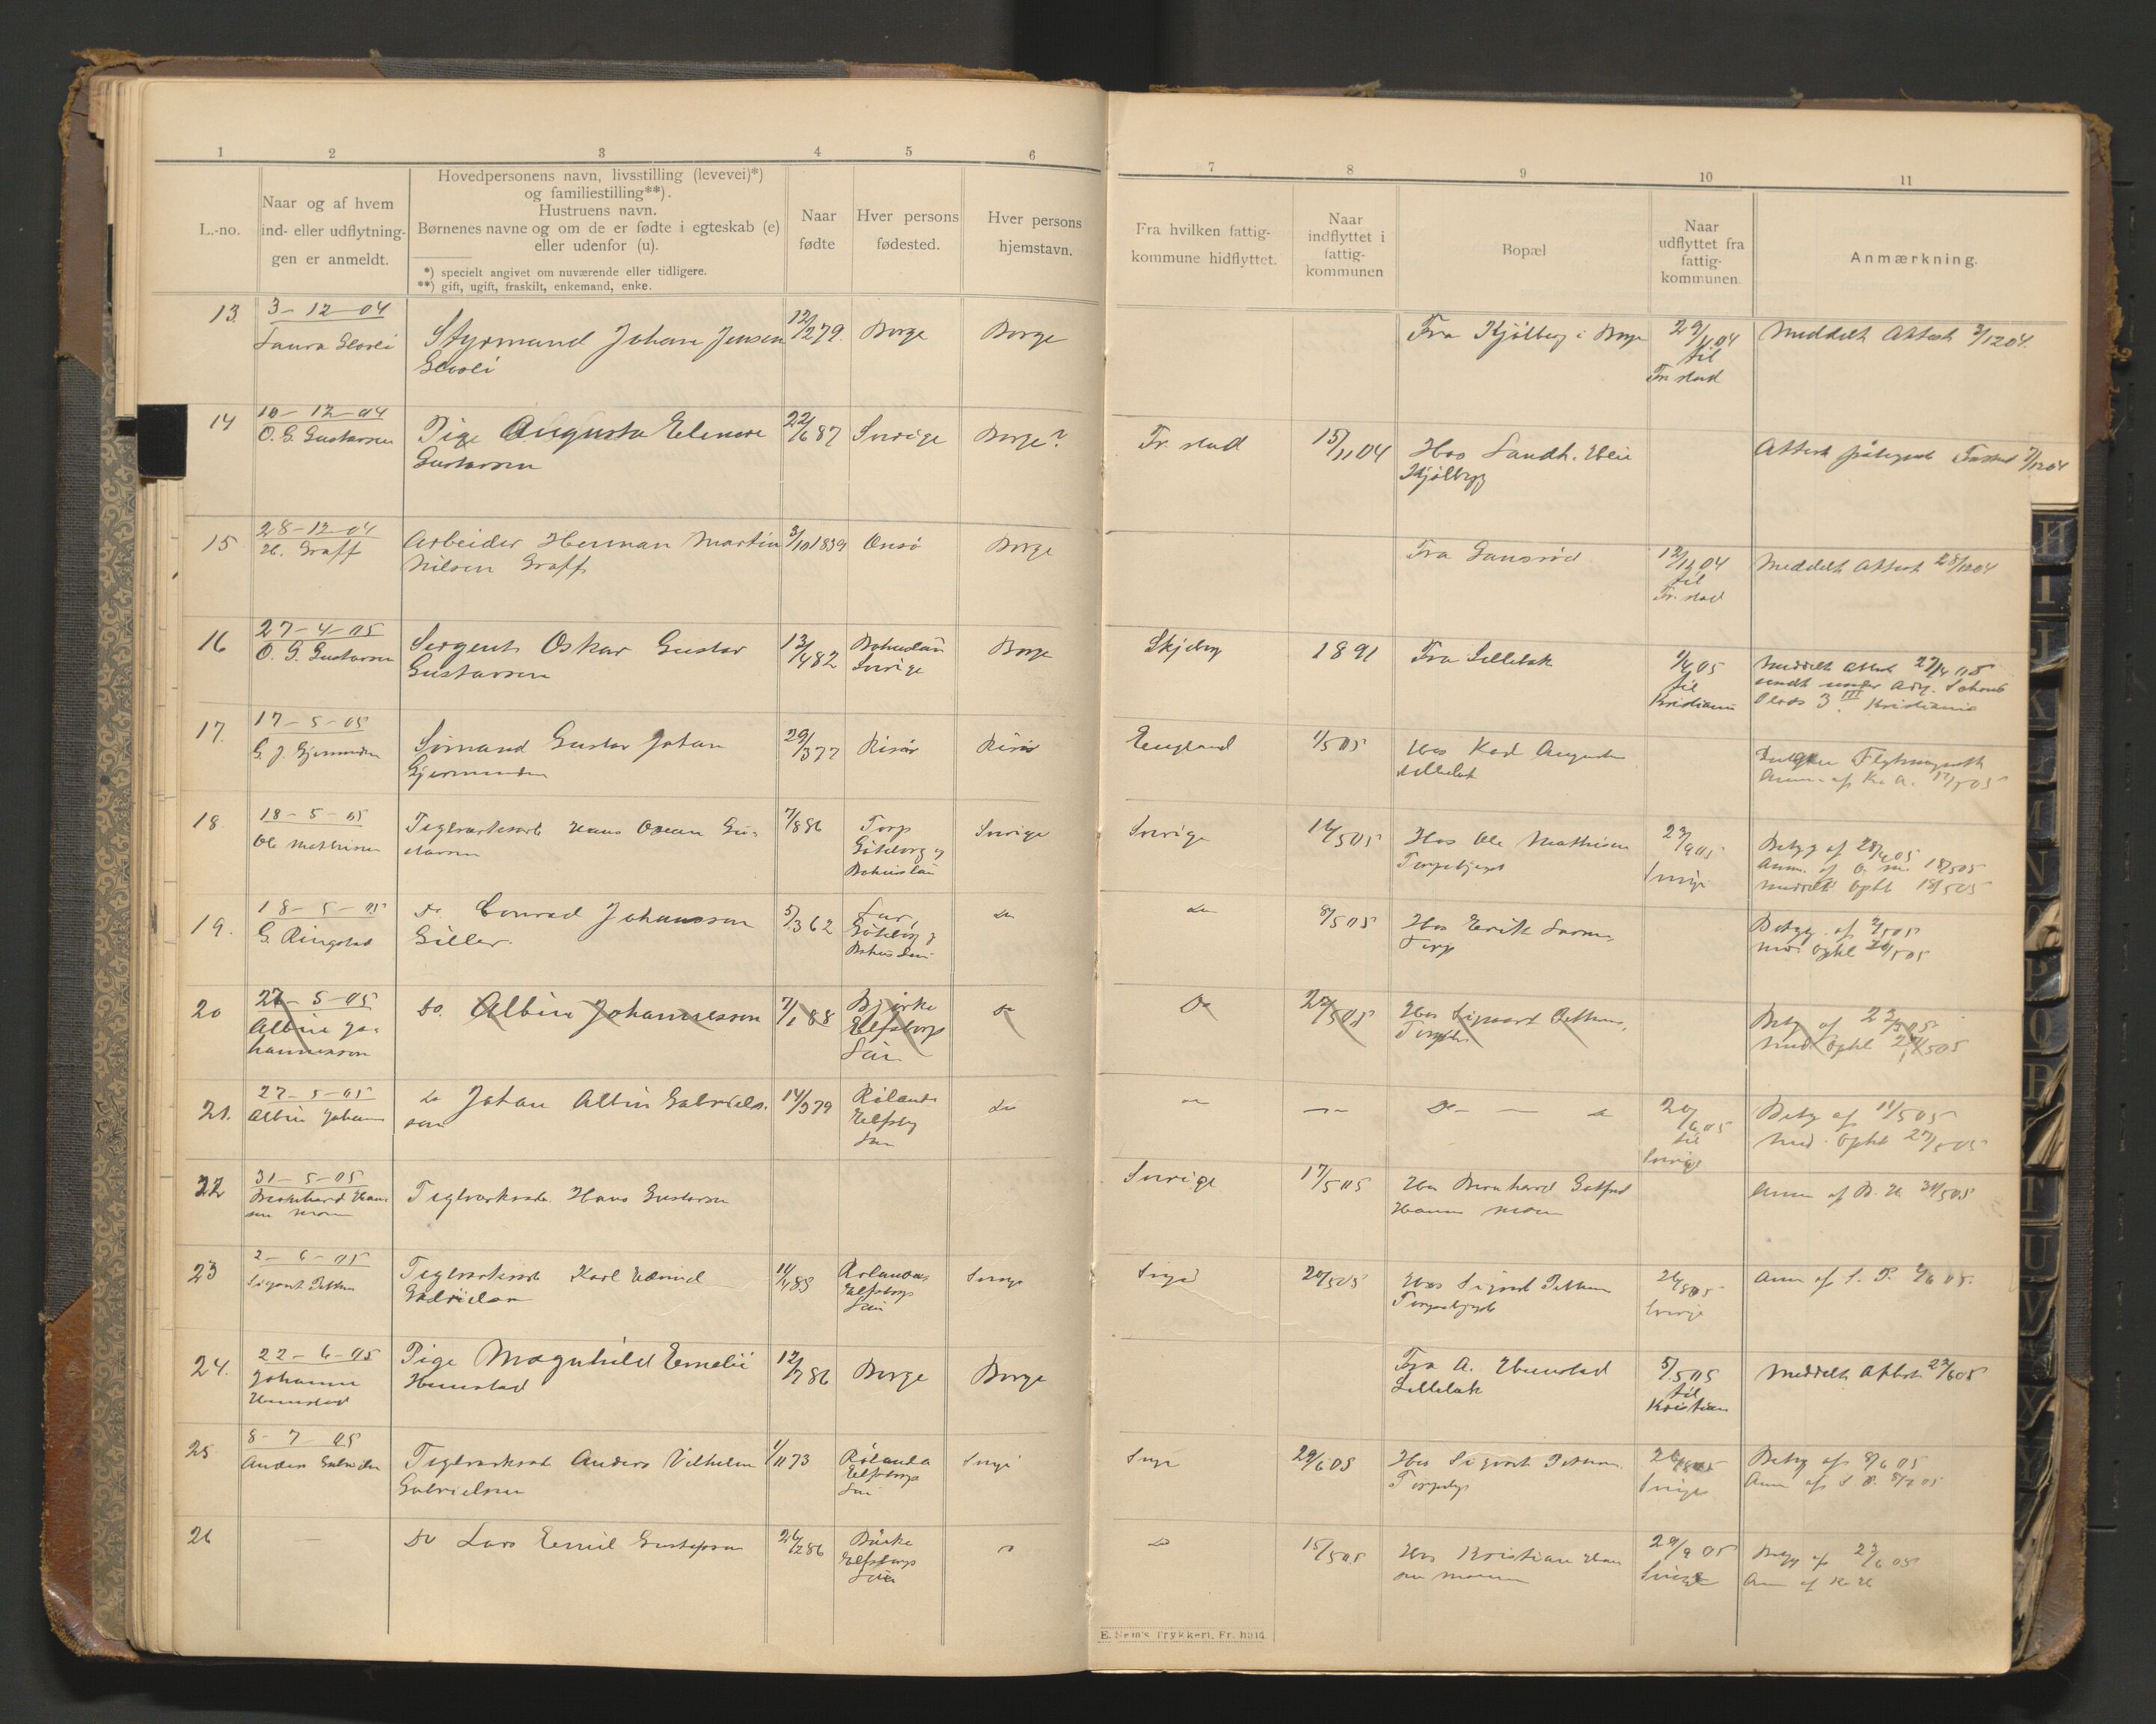 1 2 3 4 5 6 7 8 9 10 11
L.-no.
Naar og af hvem
ind- eller udflytnin-
gen er anmeldt.
Hovedpersonens navn, livsstilling (levevei)*)
og familiestilling**).
Hustruens navn.
Børnenes navne og om de er fødte i egteskab (e)
eller udenfor (u).
*) specielt angivet om nuværende eller tidligere.
**) gift, ugift, fraskilt, enkemand, enke.
Naar
fødte
Hver persons
fødested.
Hver persons
hjemstavn.
Fra hvilken fattig-
kommune hidflyttet.
Naar
indflyttet i
fattig-
kommunen
Bopæl
Naar
udflyttet fra
fattig-
kommunen.
Anmærkning.
13. 3-12-04 Styrmand Johan Jensen 12/2 79. Borge Borge Fra Kjølberg i Borge 29/11 04 Meddelt Attest 3/12 04.
Laura til
Fr.stad
14 10-12-04 Pige Augusta Elenore 22/6 87 Sverige Borge? Fr.stad 15/11 04 Hos Landh. Kjølberg Attest
O. G. Gustavsen Gustavsen
15 28-12-04 Arbeider Herman Martin 3/10 1839 Onsø Borge Fra Gansrød 12/12 04 Meddelt Attest 28/12 04
H. Graff Nilsen Graff til
Fr.stad
16 27-4-05 Sergent Oskar Gustav 13/4 82 Bohuslän Borge Skjeberg 1891 Fra Lillelak 1/4 05 Meddelt Attest 27/4 05
O. G. Gustavsen Gustavsen Sverige til sendt
Kristiania Plads 3 III Kristiania
17. 17-5-05 Sømand Gustav Johan 29/3 77 Risør Risør England 1/5 05 Hos Karl August
G. J. Gjermundsen Gjermundsen Lillelak Anm. af K. A. 17/5 05
18 18-5-05 Teglverksarb Hans Oscar Gu- 7/8 86 Torp Sverige Sverige 14/5 05 Hos Ole Mathisen 27/9 05 Betyg af 28/4 05
Ole Mathisen stavsen Göteborg og Torpebjerget Sverige Anm. af O. M. 18/5 05
Bohuslän Meddelt Ophl 18/5 05
19. 18-5-05 Do. Conrad Johansson 5/3 62 Lur, Do Do 8/5 05 Hos Erik Betyg af 2/5 05
G. Ringstad Giller. Göteborg og Torp Med. Ophl 20/5 05
Bohuslän
20 27-5-05 Do. Albin Johannesson 7/1 88 Bjørke Do Do 22/5 05 Hos Sigvart Pettersen, Betyg af 22/5 05
Albin Jo- Elfsborgs Med. Ophl 27/5 05
hannesson Län
21. 27-5-05 Do Johan Albin Gabriels- 14/3 79 Rölanda Do Do 20/6 05 Betyg af 11/5 05
Albin Johann son Elfsborg til Med. Ophl 27/5 05
Län Sverige
22 31-5-05 Teglverksarb. Hans Gustavsen Sverige 17/5 05 Hos Bernhard Gotfred Anm af B. H. 31/5 05
Bernhard Han- Hansen Moum
sen Moum
23 2-6-05 Teglverksarb Karl Edvard 11/4 83 Rölanda Sverige Sverige 20/5 05 Hos Sigvard Pettersen 26/8 05 Anm af S. P. 2/6 05.
Sigvart Pettersen Gabrielsen Elfsborgs Torpebjerget Sverige
Län
24. 22-6-05 Pige Magnhild Emelie 12/7 86 Borge Borge Fra A. Hunstad 5/5 05 Meddelt Attest 22/6 05
Johanne Hunstad Lillelak til
Hunstad Kristiania
25 8-7-05 Teglverksarb Anders Vilhelm 1/11 73 Rölanda Sverige Sverige 29/6 05 Hos Sigvart Pettersen 26/8 05 Betyg af 8/6 05
Anders Gabrielsen Gabrielsen Elfsborgs Sverige Anm af S. P. 8/7 05
Län
26 — Do Lars Emil Gustafsson 26/12 86 Elfsborgs Do Do 15/5 05 Hos Kristian Han- 29/9 05 Betyg af 27/6 05
Län sen Moum Sverige Anm af K. H
E. Sem's Trykkeri, Fr.hald
H I J K M N P Q R T U V Y